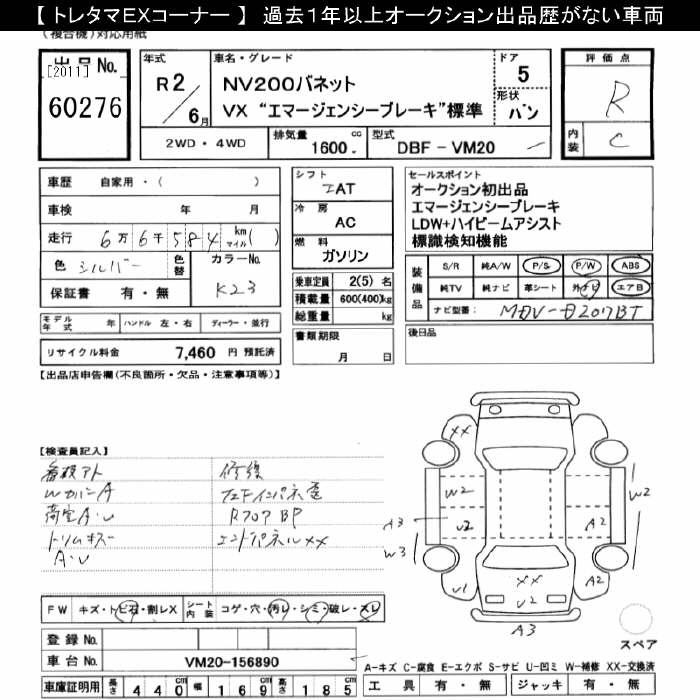 【 トレタマEXコーナー 】 過去1年以上オークション出品歴がない車両
(複合機)対応用紙
出品No.
[2011]
60276
年式
R2/6月
車名・グレード
NV200バネット
VX “エマージェンシーブレーキ”標準
ドア
5
形状
バン
評価点
R
内装
C
2WD・4WD
排気量
1600 cc
型式
DBF - VM20
車歴 自家用・( )
車検 年 月
走行 6万6千584 km マイル( )
色 シルバー 色替
カラーNo.
K23
保証書 有・無
シフト
IAT
冷房
AC
燃料
ガソリン
乗車定員 2(5) 名
積載量 600(400)kg
総重量 kg
書類期限
月 日
セールスポイント
オークション初出品
エマージェンシーブレーキ
LDW+ハイビームアシスト
標識検知機能
装備品
S/R 純A/W P/S P/W ABS
純TV 純ナビ 革シート 外ナビ エアB
ナビ型番:
後日品
モデル年式 年 ハンドル 左・右 ディーラー・並行
リサイクル料金 7,460 円 預託済
【出品店申告欄(不良箇所・欠品・注意事項等)】
【検査員記入】
看板アト
WカバーA
荷室A・U
トリムキズ
A・U
修復
R7ロアBP
エンドパネルXX
XX
W2
U2
A3
W3
U1
A2
W2
A2
XX
U2
A3
FW キズ・トビ石・割レX
シート内装 コゲ・穴・汚レ・シミ・破レ・スレ
登録No.
車台No. VM20-156890
車庫証明用 長さ 440 cm 幅 169 cm 高さ 185 cm
スペア
A-キズ C-腐食 E-エクボ S-サビ U-凹ミ W-補修 XX-交換済
工具 有・無 ジャッキ 有・無